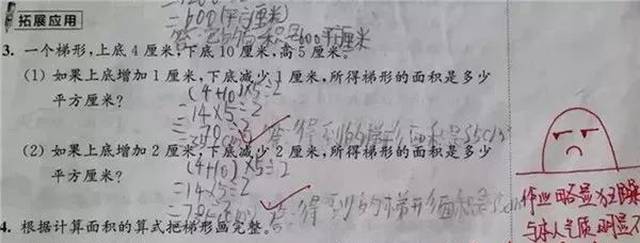 =600(平方厘米)
拓展应用
600平方厘米
3. 一个梯形,上底 4 厘米,下底 10 厘米,高 5 厘米。
(1) 如果上底增加 1 厘米,下底减少 1 厘米,所得梯形的面积是多少
平方厘米?
(4+10)×5÷2
=14×5÷2
=70÷2
答:得到的梯形面积是35c
(2) 如果上底增加 2 厘米,下底减少 2 厘米,所得梯形的面积是多少
平方厘米?
(4+10)×5÷2
=14×5÷2
=70÷2
答:得到的梯形面积是
4. 根据计算面积的算式把梯形画完整。
作业略显狂躁
与本人气质明显不